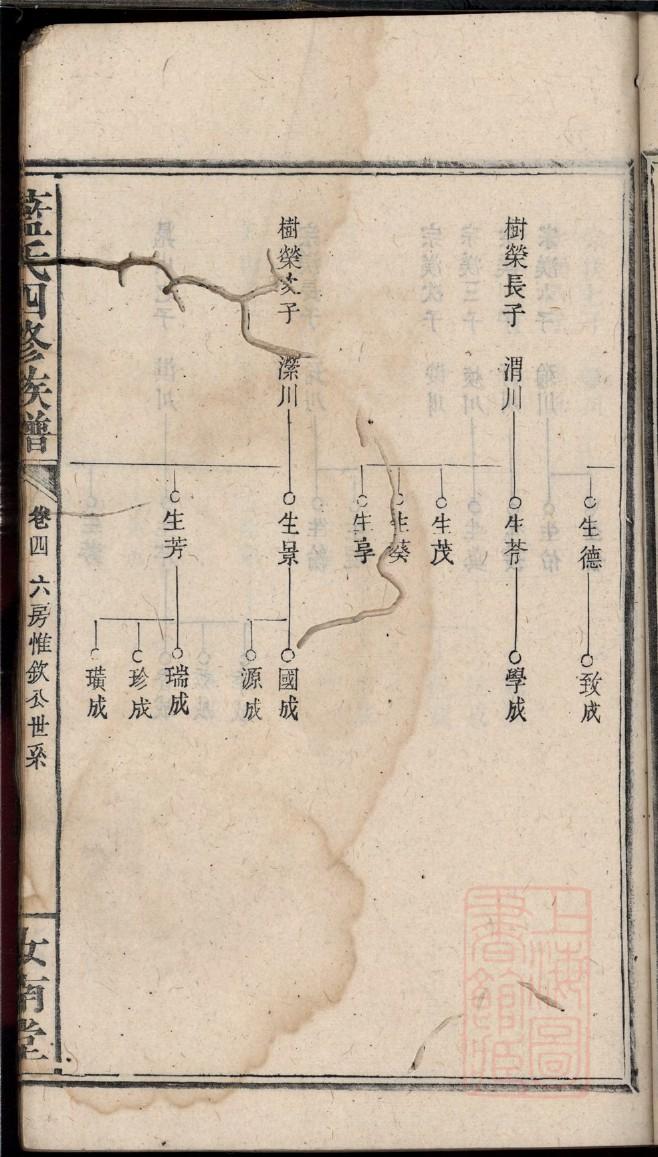 生德
致成
樹榮長子
渭川
生苓
學成
生茂
生葵
生𦤎
樹榮次子
濚川
生景
國成
源成
生芳
瑞成
珍成
璜成
藍氏四修族譜
卷四
六房惟欽公世系
汝南堂
上海圖書館藏